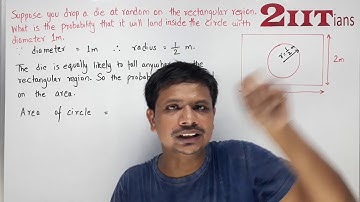 Suppose you drop a die at random on the rectangular region.
What is the probability that it will land inside the circle with
diameter 1m.
2IITians
∵ diameter = 1m ∴ radius = 1/2 m.
The die is equally likely to fall anywhere
rectangular region. So the
on the area.
Area of circle =
r = 1/2 m
2m